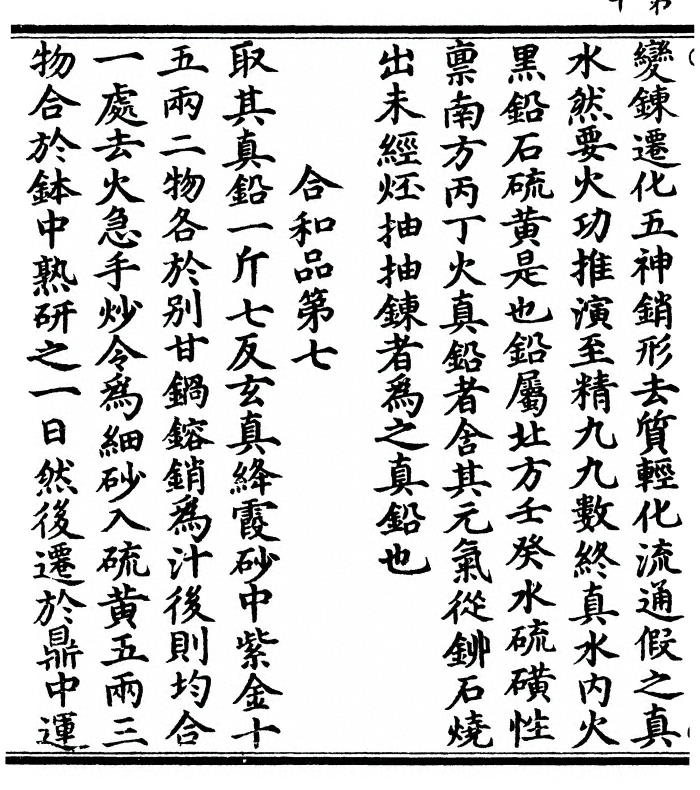 變鍊遷化五神銷形去質輕化流通假之真
水然要火功推演至精九九數終真水內火
黑鉛石硫黃是也鉛屬北方壬癸水硫磺性
禀南方丙丁火真鉛者含其元氣從鉚石燒
出未經烣抽抽鍊者爲之真鉛也
合和品第七
取其真鉛一斤七反玄真絳霞砂中紫金十
五兩二物各於别甘鍋鎔銷爲汁後則均合
一處去火急手炒令爲細砂入硫黃五兩三
物合於鉢中熟研之一日然後遷於鼎中運